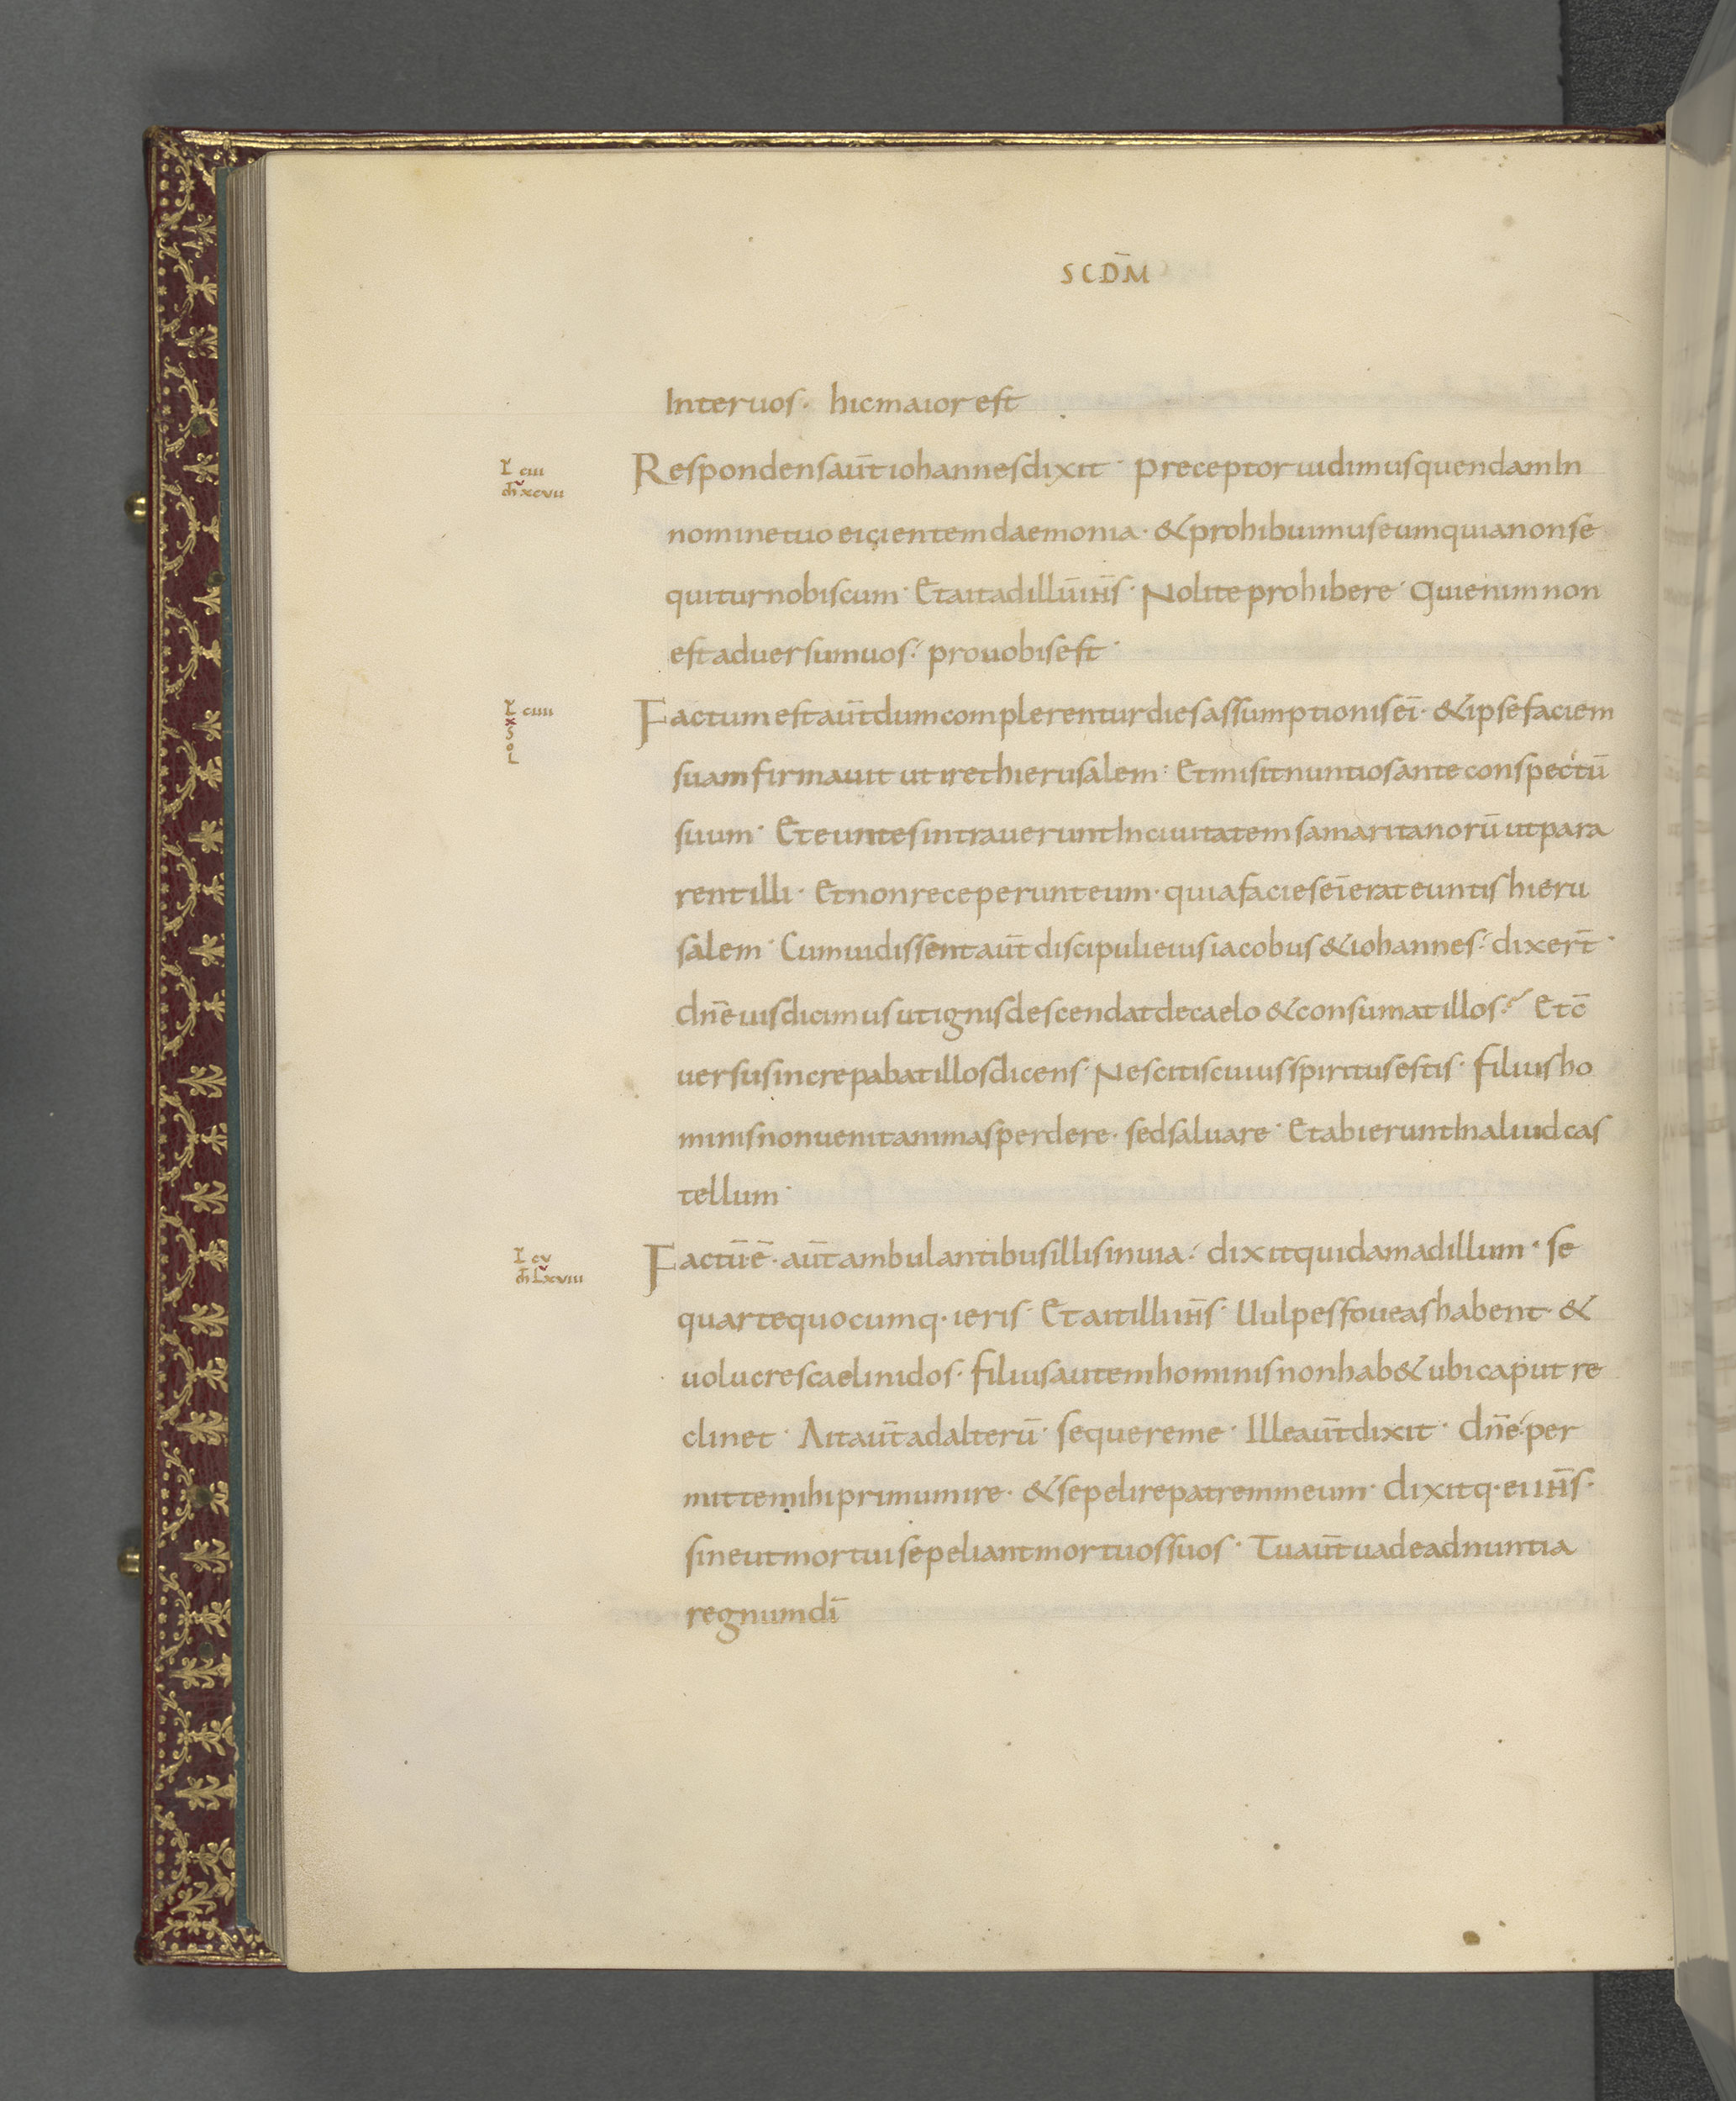 SCD̄M
Inter uos · hic maior est
L ciii
m̄ xcvii
Respondens aūt iohannes dixit · preceptor uidimus quendam In
nomine tuo eicientem daemonia · & prohibuimus eum quia non se
quitur nobiscum · Et ait ad illū ih̄s · Nolite prohibere · Qui enim non
est aduersum uos · pro uobis est ·
L ciiii
x
S
o
L
Factum est aūt dum complerentur dies assumptionis eī · & ipse faciem
suam firmauit ut iret hierusalem · Et misit nuntios ante conspectū
suum · Et euntes intrauerunt In ciuitatem samaritanorū ut para
rent illi · Et non receperunt eum · quia facies eī erat euntis hieru
salem · Cum uidissent aūt discipuli eius iacobus & iohannes · dixerт̄ ·
dn̄e uis dicimus ut ignis descendat de caelo & consumat illos? Et c̄
uersus increpabat illos dicens · Nescitis cuius spiritus estis · filius ho
minis non uenit animas perdere · sed saluare · Et abierunt In aliud cas
tellum ·
L cv
m̄ Lxviii
Factū ē · aūt ambulantibus illis in uia · dixit quidam ad illum · se
quar te quocumq · ieris · Et ait illi ih̄s · Uulpes foueas habent · &
uolucres caeli nidos · filius autem hominis non hab& ubi caput re
clinet · Ait aūt ad alterū · sequere me · Ille aūt dixit · dn̄e per
mitte mihi primum ire · & sepelire patrem meum · dixitq · ei ih̄s ·
sine ut mortui sepeliant mortuos suos · Tu aūt uade adnuntia
regnum dī